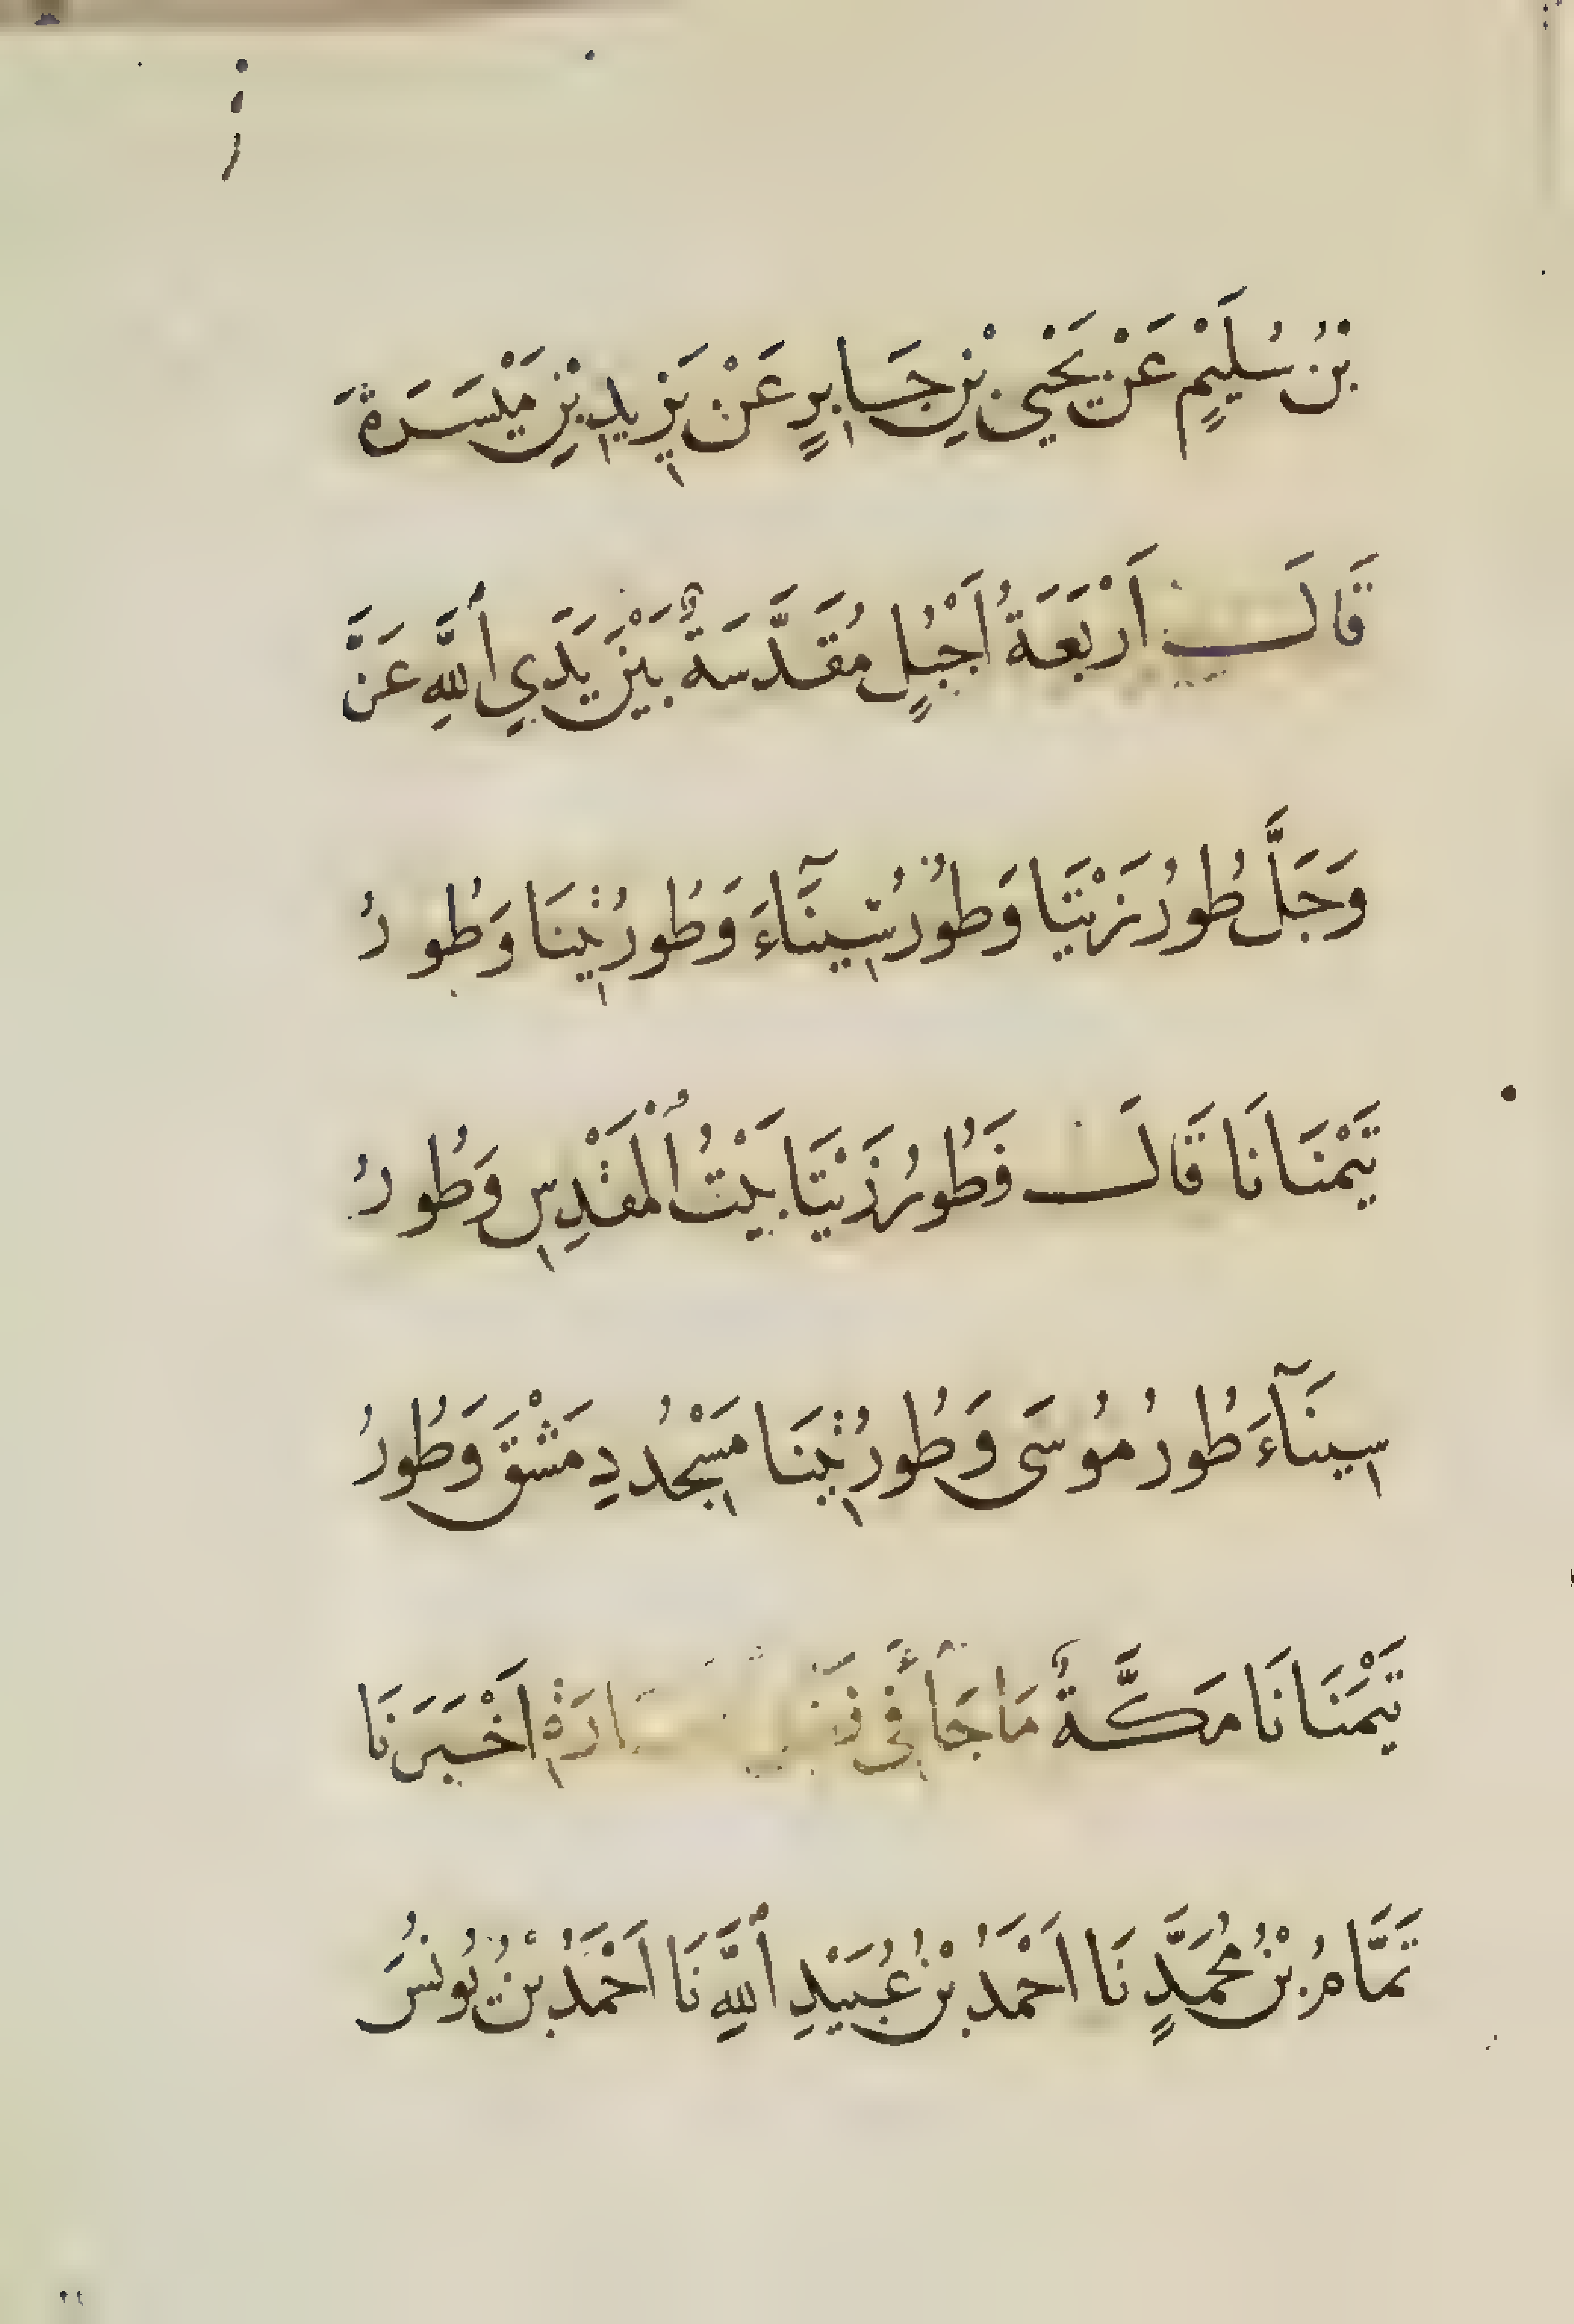 بْنُ سُلَيْمٍ عَنْ يَحْيَى بْنِ جَابِرٍ عَنْ يَزِيدِ بْنِ مَيْسَرَةَ
قَالَ أَرْبَعَةُ أَجْبُلٍ مُقَدَّسَةٌ بَيْنَ يَدَيِ اللَّهِ عَزَّ
وَجَلَّ طُورُ زَيْتَا وَطُورُ سِينَآءَ وَطُورُ تِينَا وَطُورُ
تَيْمَنَانَا قَالَ فَطُورُ زَيْتَا بَيْتُ الْمَقْدِسِ وَطُورُ
سِينَآءَ طُورُ مُوسَى وَطُورُ تِينَا مَسْجِدُ دِمَشْقَ وَطُورُ
تَيْمَنَانَا مَكَّةُ مَا جَآءَ فِي أَخْبَرَنَا
تَمَّامُ بْنُ مُحَمَّدٍ نَا أَحْمَدُ بْنُ عُبَيْدِ اللَّهِ نَا أَحْمَدُ بْنُ يُونُسَ